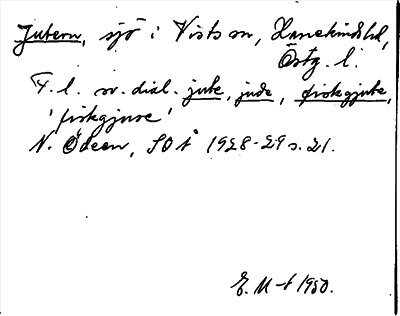 Jutern, sjö i Vists sn, Hanekinds hd,
Östg. l.
F. l. sv. dial. jute, jude, fiskjute,
'fiskgjuse'
N. Ödeen, SOÅ 1928-29 s. 21.
E. M-t 1950.